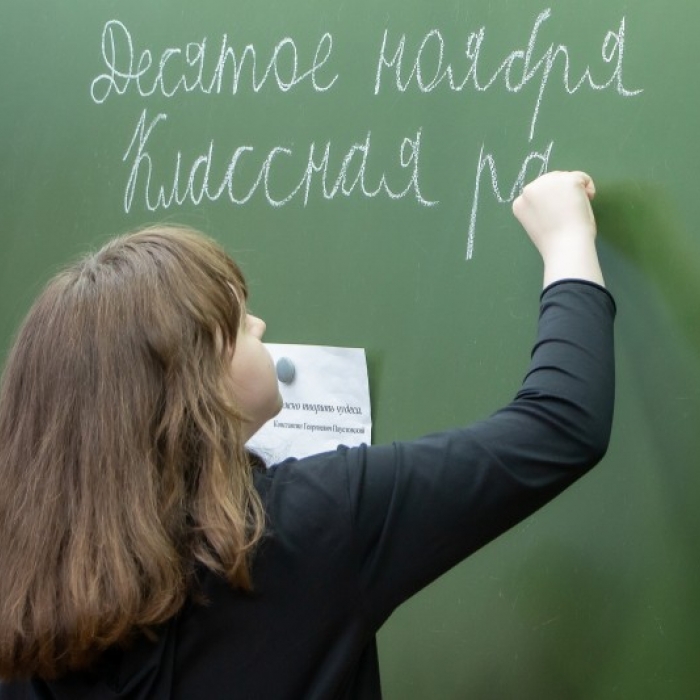 Десятое ноября
Классная ра
творить чудеса.
Константин Георгиевич Паустовский